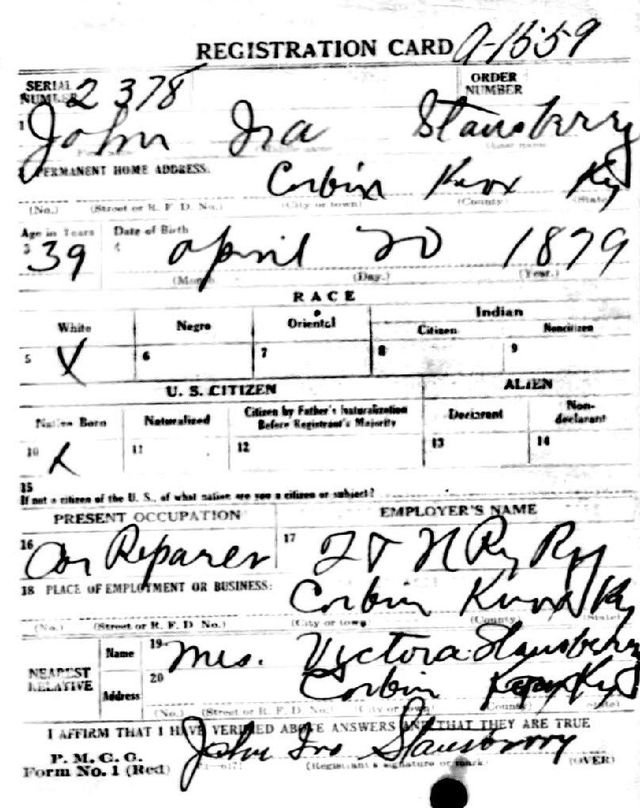 REGISTRATION CARD A-1559
SERIAL NUMBER 2378 ORDER NUMBER
1 John Ira Stansberry
PERMANENT HOME ADDRESS:
Corbin Knox Ky
(No.) (Street or R. F. D. No.) (City or town) (County) (State)
Age in Years Date of Birth
3 39 4 April 20 1879
(Month) (Day.) (Year.)
RACE
White Negro Oriental Indian
Citizen Noncitizen
5 X 6 7 8 9
U. S. CITIZEN ALIEN
Native Born Naturalized Citizen by Father's Naturalization Before Registrant's Majority Declarant Non-declarant
10 X 11 12 13 14
15
If not a citizen of the U. S., of what nation are you a citizen or subject?
PRESENT OCCUPATION EMPLOYER'S NAME
16 Car Reparer 17 L & N Ry
18 PLACE OF EMPLOYMENT OR BUSINESS:
Corbin Knox Ky
(No.) (Street or R. F. D. No.) (City or town) (County) (State)
NEAREST RELATIVE
Name 19 Mrs. Victora Stansberry
Address 20 Corbin Ky
(No.) (Street or R. F. D. No.) (City or town) (County) (State)
I AFFIRM THAT I HAVE VERIFIED ABOVE ANSWERS AND THAT THEY ARE TRUE
P. M. G. O.
Form No. 1 (Red) John Ira Stansberry
(Registrant's signature or mark) (OVER)